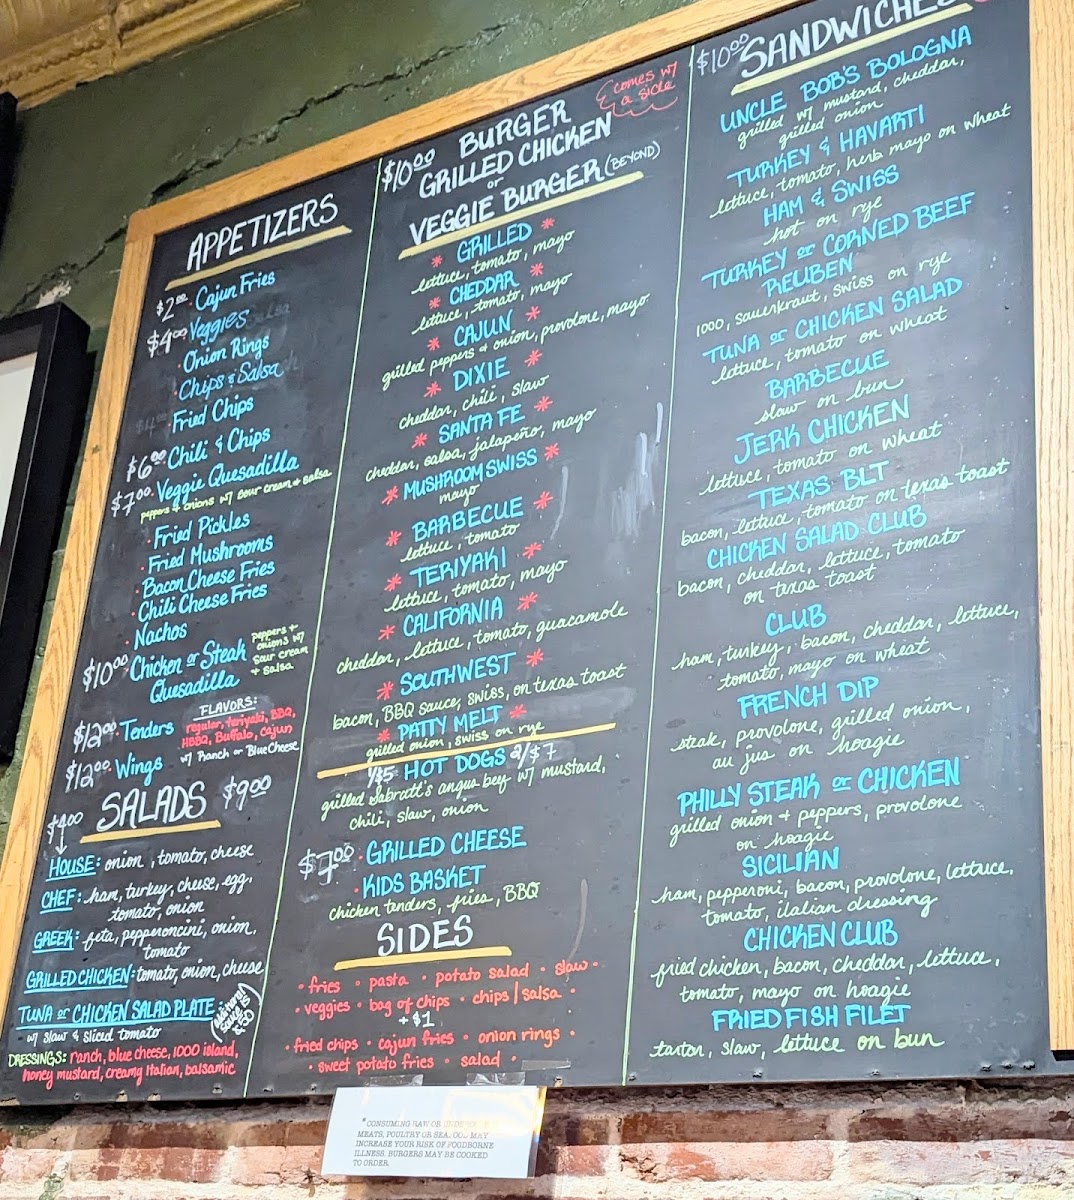 APPETIZERS
$2.00 Cajun Fries
$4.00 Veggies
· Onion Rings
· Chips & Salsa
· Fried Chips
$6.00 · Chili & Chips
$7.00 · Veggie Quesadilla
peppers + onions w/ sour cream + salsa
· Fried Pickles
· Fried Mushrooms
· Bacon Cheese Fries
· Chili Cheese Fries
· Nachos
$10.00 · Chicken or Steak
Quesadilla
peppers +
onions w/
sour cream
+ salsa
$12.00 · Tenders
$12.00 · Wings
FLAVORS:
regular, teriyaki, BBQ,
HBBQ, Buffalo, cajun
w/ Ranch or Blue Cheese
SALADS $9.00
$4.00
HOUSE: onion, tomato, cheese
CHEF: ham, turkey, cheese, egg,
tomato, onion
GREEK: feta, pepperoncini, onion,
tomato
GRILLED CHICKEN: tomato, onion, cheese
TUNA or CHICKEN SALAD PLATE
w/ slaw & sliced tomato
DRESSINGS: ranch, blue cheese, 1000 island,
honey mustard, creamy Italian, balsamic
$10.00 BURGER
GRILLED CHICKEN
or
VEGGIE BURGER (BEYOND)
comes w/
a side
* GRILLED *
lettuce, tomato, mayo
* CHEDDAR *
lettuce, tomato, mayo
* CAJUN *
grilled peppers + onion, provolone, mayo
* DIXIE *
cheddar, chili, slaw
* SANTA FE *
cheddar, salsa, jalapeño, mayo
* MUSHROOM SWISS *
mayo
* BARBECUE *
lettuce, tomato
* TERIYAKI *
lettuce, tomato, mayo
* CALIFORNIA *
cheddar, lettuce, tomato, guacamole
* SOUTHWEST *
bacon, BBQ sauce, swiss, on texas toast
* PATTY MELT *
grilled onion, swiss on rye
1/$5 HOT DOGS 2/$7
grilled Sabrett's angus beef w/ mustard,
chili, slaw, onion
$7.00 · GRILLED CHEESE
· KIDS BASKET
chicken tenders, fries, BBQ
SIDES
· fries · pasta · potato salad · slaw ·
· veggies · bag of chips · chips/salsa ·
+ $1
· fried chips · cajun fries · onion rings ·
· sweet potato fries · salad ·
$10.00 SANDWICHES
UNCLE BOB'S BOLOGNA
grilled w/ mustard, cheddar,
grilled onion
TURKEY & HAVARTI
lettuce, tomato, herb mayo on wheat
HAM & SWISS
hot on rye
TURKEY or CORNED BEEF
REUBEN
1000, sauerkraut, swiss on rye
TUNA or CHICKEN SALAD
lettuce, tomato on wheat
BARBECUE
slaw on bun
JERK CHICKEN
lettuce, tomato on wheat
TEXAS BLT
bacon, lettuce, tomato on texas toast
CHICKEN SALAD CLUB
bacon, cheddar, lettuce, tomato
on texas toast
CLUB
ham, turkey, bacon, cheddar, lettuce,
tomato, mayo on wheat
FRENCH DIP
steak, provolone, grilled onion,
au jus on hoagie
PHILLY STEAK or CHICKEN
grilled onion + peppers, provolone
on hoagie
SICILIAN
ham, pepperoni, bacon, provolone, lettuce,
tomato, italian dressing
CHICKEN CLUB
fried chicken, bacon, cheddar, lettuce,
tomato, mayo on hoagie
FRIED FISH FILET
tartar, slaw, lettuce on bun
*CONSUMING RAW OR
MEATS, POULTRY OR MAY
INCREASE YOUR RISK OF FOODBORNE
ILLNESS. BURGERS MAY BE COOKED
TO ORDER.